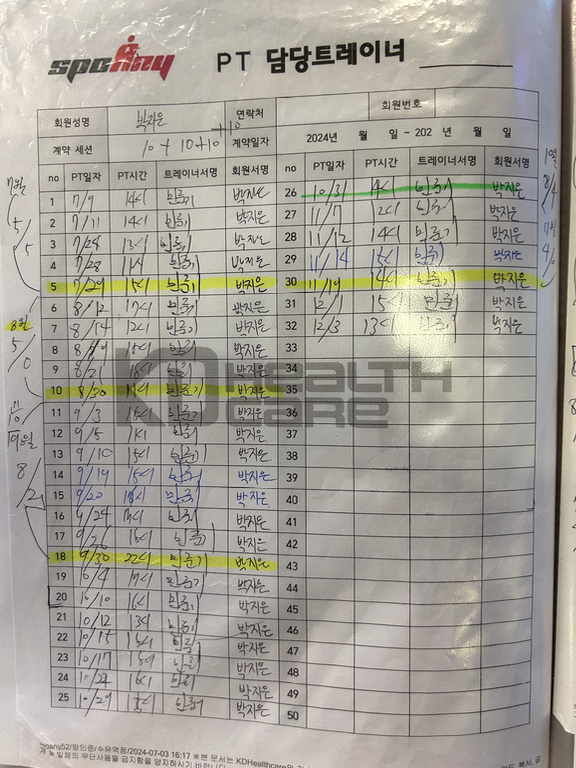 SPOANY
PT 담당트레이너
회원성명 박지은 연락처 회원번호
계약 세션 10+10+10+10 계약일자 2024년 월 일 ~ 202 년 월 일
no PT일자 PT시간 트레이너서명 회원서명 no PT일자 PT시간 트레이너서명 회원서명
1 7/9 14시 민준기 박지은 26 10/31 민준기 박지은
2 7/11 14시 민준기 박지은 27 11/7 12시 민준기 박지은
3 7/24 13시 민준기 박지은 28 11/12 14시 민준기 박지은
4 7/28 민준기 박지은 29 11/14 15시 민준기 박지은
5 7/29 15시 민준기 박지은 30 11/19 14시 민준기 박지은
6 8/12 17시 민준기 박지은 31 12/1 15시 민준기 박지은
7 8/14 12시 민준기 박지은 32 12/3 13시 민준기 박지은
8 박지은 33
9 8/21 박지은 34
10 8/30 민준기 박지은 35
11 9/3 16시 민준기 박지은 36
12 9/5 박지은 37
13 9/10 15시 민준기 박지은 38
14 9/19 15시 박지은 39
15 9/20 박지은 40
16 9/24 박지은 41
17 9/26 16시 민준기 박지은 42
18 9/30 22시 민준기 박지은 43
19 10/4 민준기 박지은 44
20 10/10 16시 민준기 박지은 45
21 10/12 13시 민준기 박지은 46
22 10/15 박지은 47
23 10/17 박지은 48
24 10/22 16시 박지은 49
25 10/29 민준기 박지은 50
7월
5/5
8월
5/0
9월
8/2
10월
8/4
11월
4/0
KD HEALTH CARE
/수유역점/2024-07-03 16:17 ※본 문서는 KDHealthcare의
개 및 일체의 무단사용을 금지함을 양지하시기 바랍니다.